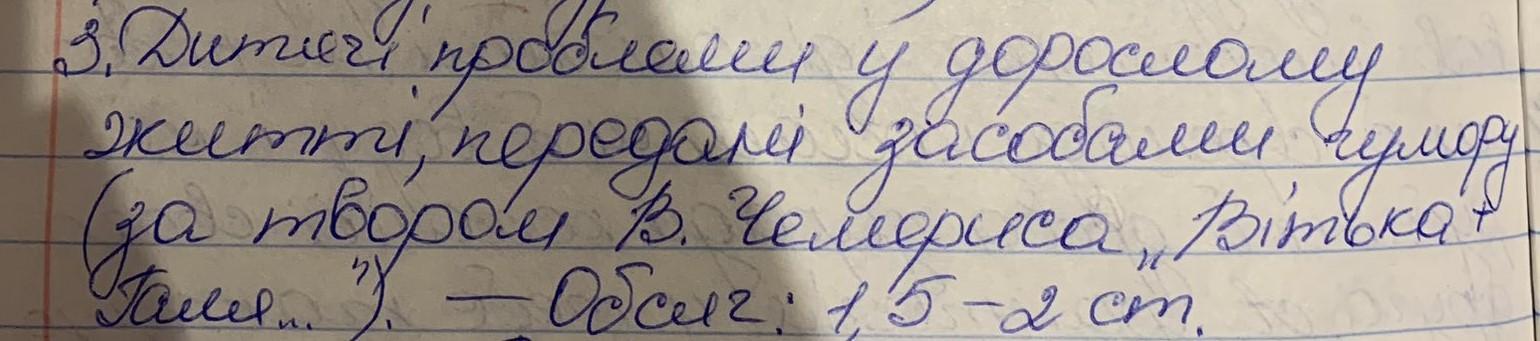 3. Дитячі проблеми у дорослому
житті, передані засобами гумору
(за твором В. Чемериса „Вітька +
Галя..."). — Обсяг: 1,5 – 2 ст.